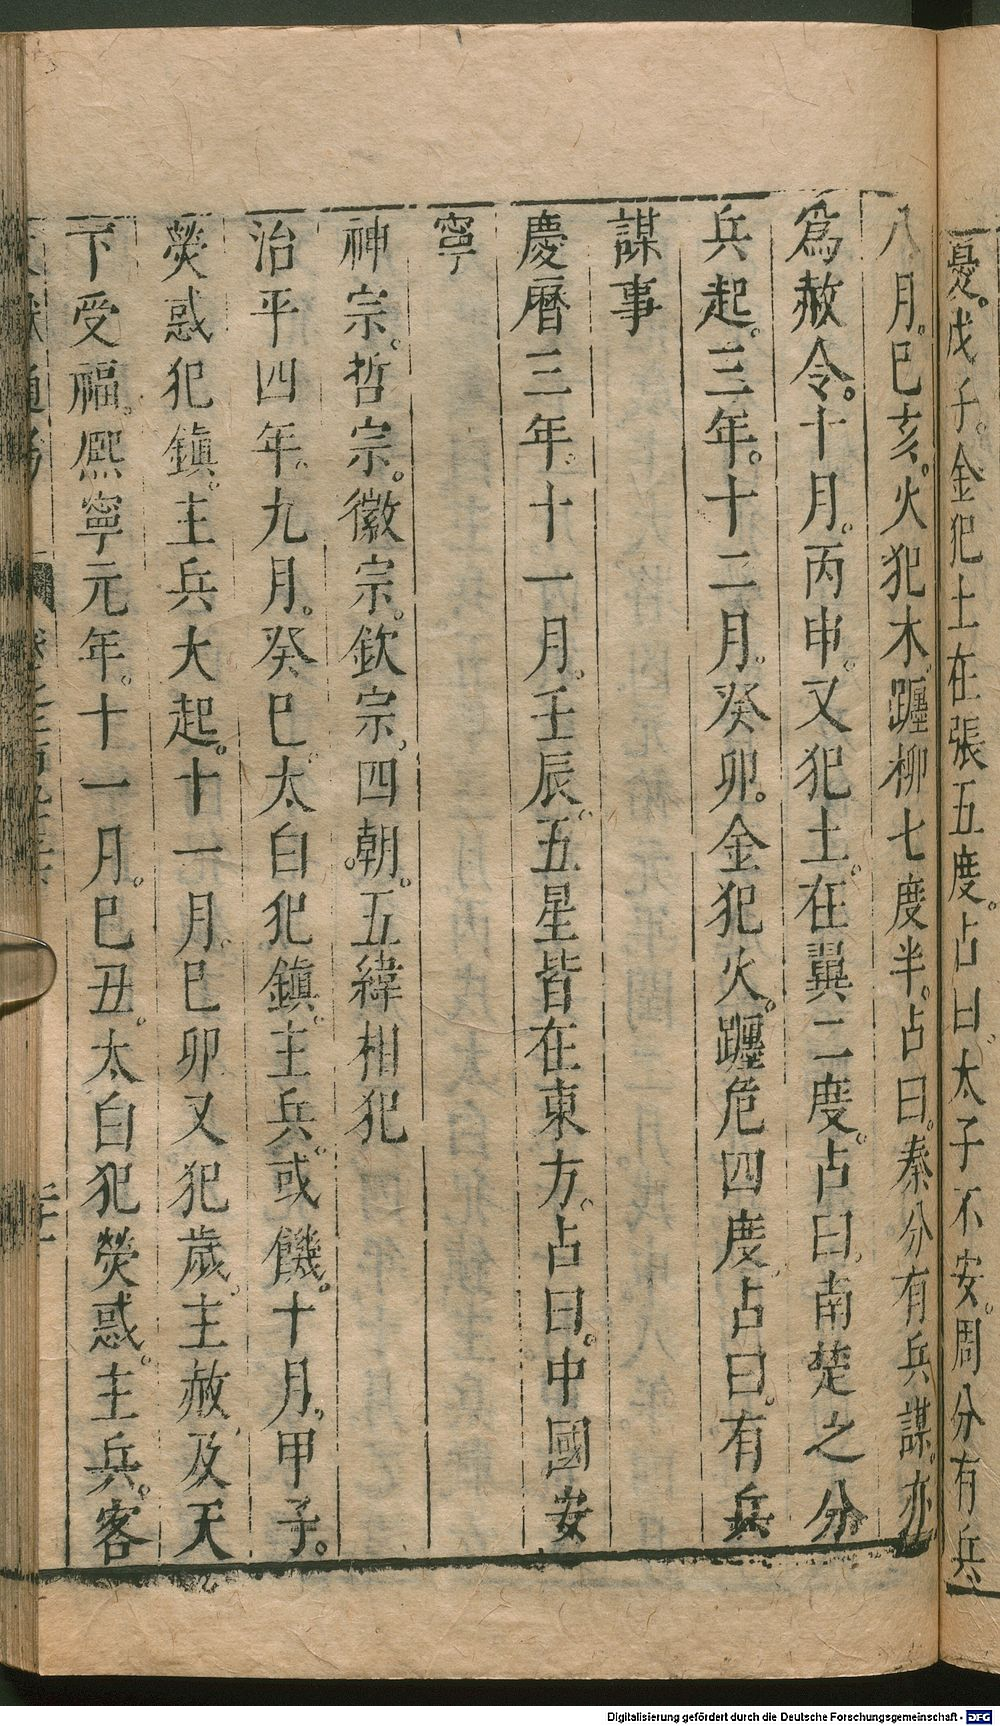 憂。戊子。金犯土在張五度。占曰。太子不安。周分有兵
八月。巳亥。火犯木。躔柳七度半。占曰。秦分有兵謀。亦
爲赦令。十月。丙申。又犯土。在翼二度。占曰。南楚之分
兵起。三年。十二月。癸卯。金犯火。躔危四度。占曰。有兵
謀事
慶曆三年。十一月。壬辰。五星皆在東方。占曰。中國安
寧
神宗。哲宗。徽宗。欽宗。四朝。五緯相犯
治平四年。九月。癸巳。太白犯鎮。主兵。或饑。十月。甲子。
熒惑犯鎮。主兵大起。十一月。巳卯又犯歲。主赦。及天
下受福。熈寧元年。十一月。巳丑。太白犯熒惑。主兵。客
Digitalisierung gefördert durch die Deutsche Forschungsgemeinschaft - DFG